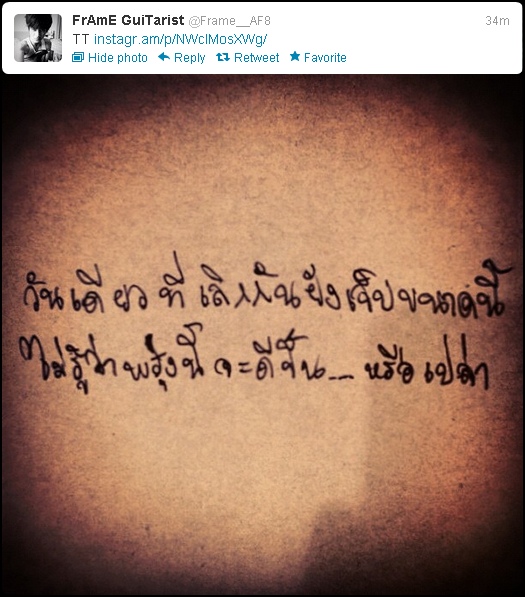 FrAmE GuiTarist @Frame__AF8 34m
TT instagr.am/p/NWclMosXWg/
Hide photo Reply Retweet Favorite
วันเดียว ที่ เลิกกัน ยังเจ็บขนาดนี้
ไม่รู้ว่า พรุ่งนี้ จะดีขึ้น.... หรือ เปล่า